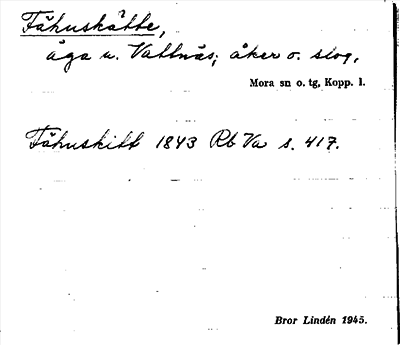 Fähuskátte,
äga u. Vattnäs; åker o. slog,
Mora sn o. tg, Kopp. l.
Fähuskitt 1843 Rb Va s. 417.
Bror Lindén 1945.